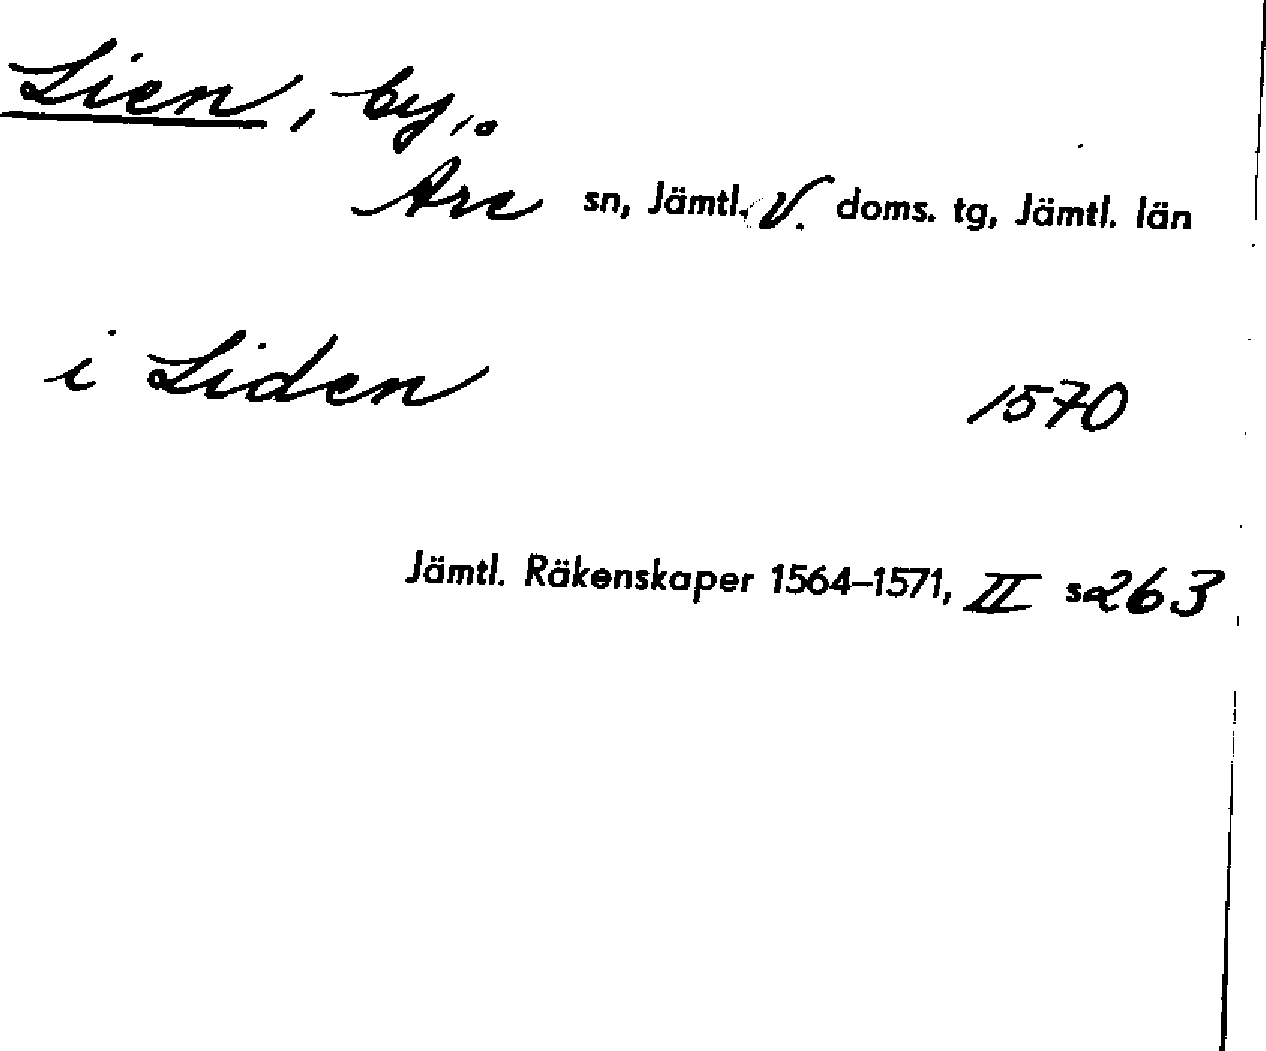 Lien, by,
Åre sn, Jämtl. V. doms. tg, Jämtl. län
i Liden 1570
Jämtl. Räkenskaper 1564–1571, II s 263